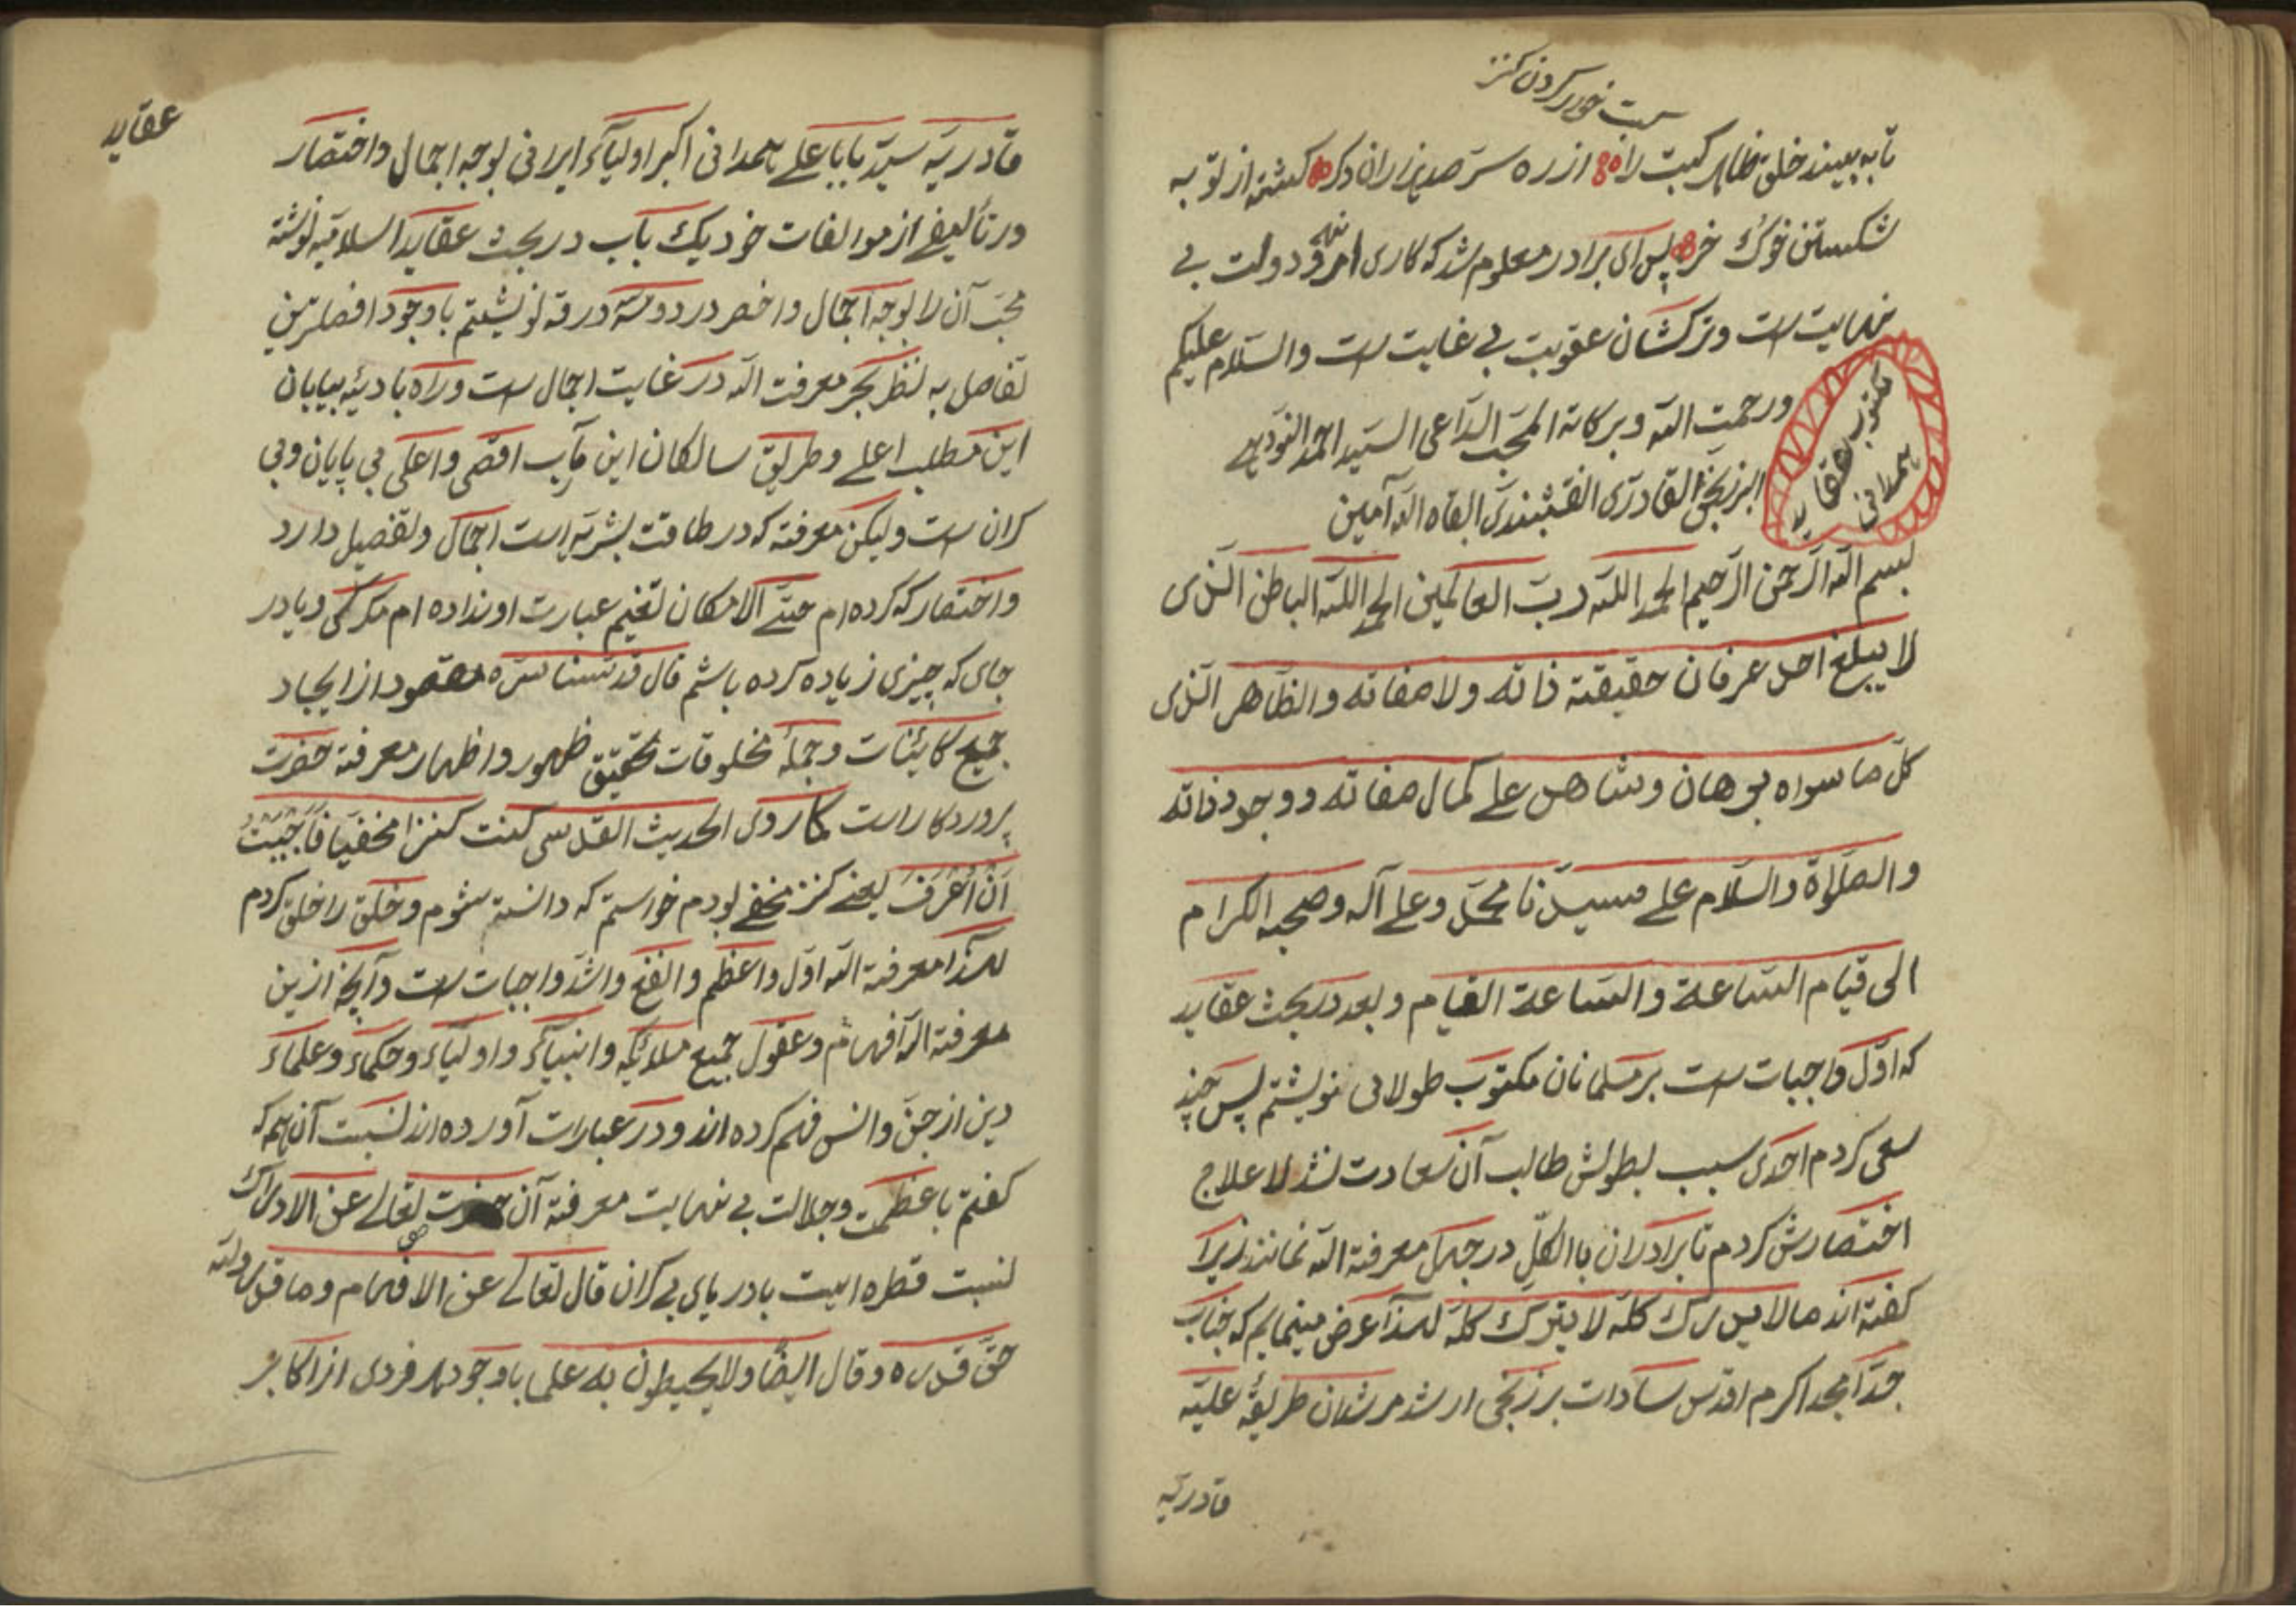 تا به بیند خلق ظاهر کبت را از ره ستر صد هزاران دکر کشته از توبه
شکستن خوک خر پس ای برادر معلوم شد که کاری دولت بی
نهایت است و ترکشان عقوبت بی غایت است والسّلام علیکم
ورحمت الله وبرکاته المحبّ الدّاعی السیّد احمد النودیهی
البرزنجی القادری النقشبندی القاه الله آمین
مکتوب عقاید
همدانی
بسم الله الرّحمن الرّحیم الحمد اللته ربّ العالمین الحمد اللته الباطن الّذی
لا یبلغ احل عرفان حقیقته ذاته ولا صفاته والظّاهر الّذی
کلّ ما سواه برهان وشاهد علی کمال صفاته ووجود ذاته
والصّلواة والسّلام علی سیدنا محمّد وعلی آله وصحبه الکرام
الی قیام السّاعة والسّاعة القیام وبعد در بحث عقاید
که اوّل واجبات است بر مسلمانان مکتوب طولانی نویشتم پس چند
سعی کردم احدی سبب بطولش طالب آن سعادت نشد لا علاج
اختصارش کردم تا برادران باالکلّ در جهل معرفة الله نمانند زیرا
کفته اند ما لا یدرک کلّه لا یترک کلّه لهذا عرض مینمایم که جناب
جدّ امجد اکرم اقدس سادات برزنجی ارشد مرشدان طریقهٔ علیّه
قادریّه
عقاید
قادریّه سیّد بابا علی همدانی اکبر اولیآء ایرانی بوجه اجمال واختصار
در تألیفی از موالفات خود یک باب در بحث عقاید اسلامیّه نوشته
محبّ آن را بوجه اجمال واخصر در دو سه ورقه نویشتم باوجود افضلترین
تفاصل به نظر بحر معرفت الله در غایت اجمال است وراه بادیهٔ بیابان
این مطلب اعلی وطریق سالکان این مآب اقصی واعلی بی پایان وبی
کران است ولیکن معرفته که در طاقت بشریّه است اجمال وتفصیل دارد
واختصار که کرده ام حتّی الامکان تغیّر عبارت او نداده ام مکر کمی ویا در
جای که چیزی زیاده کرده باشم قال قدّسنا سرّه مقصود از ایجاد
جمیع کائنات وجملهٔ مخلوقات تحقیق ظهور واظهار معرفة حضرت
پروردکار است کما روی الحدیث القدسی کنت کنزا مخفیّا فأحببت
أن أعرف یعنی کنز مخفی بودم خواستم که دانسته شوم وخلق را خلق کردم
لهذا معرفة الله اوّل واعظم وانفع واشدّ واجبات است وآنچه ازین
معرفة الله افهام وعقول جمیع ملائکه وانبیآء واولیآء وحکماء وعلماء
دین از جنّ وانس فهم کرده اند ودر عبارات آورده اند نسبت آن همه که
کفتم با عظمت وجلالت بی نهایت معرفة آن حضرت تعالی عن الادراک
نسبت قطره ایست با دریای بی کران قال تعالی عن الافهام وما قدروالله
حقّ قدره وقال ایضًا ولا یحیطون به علما باوجود هر فردی از اکابر